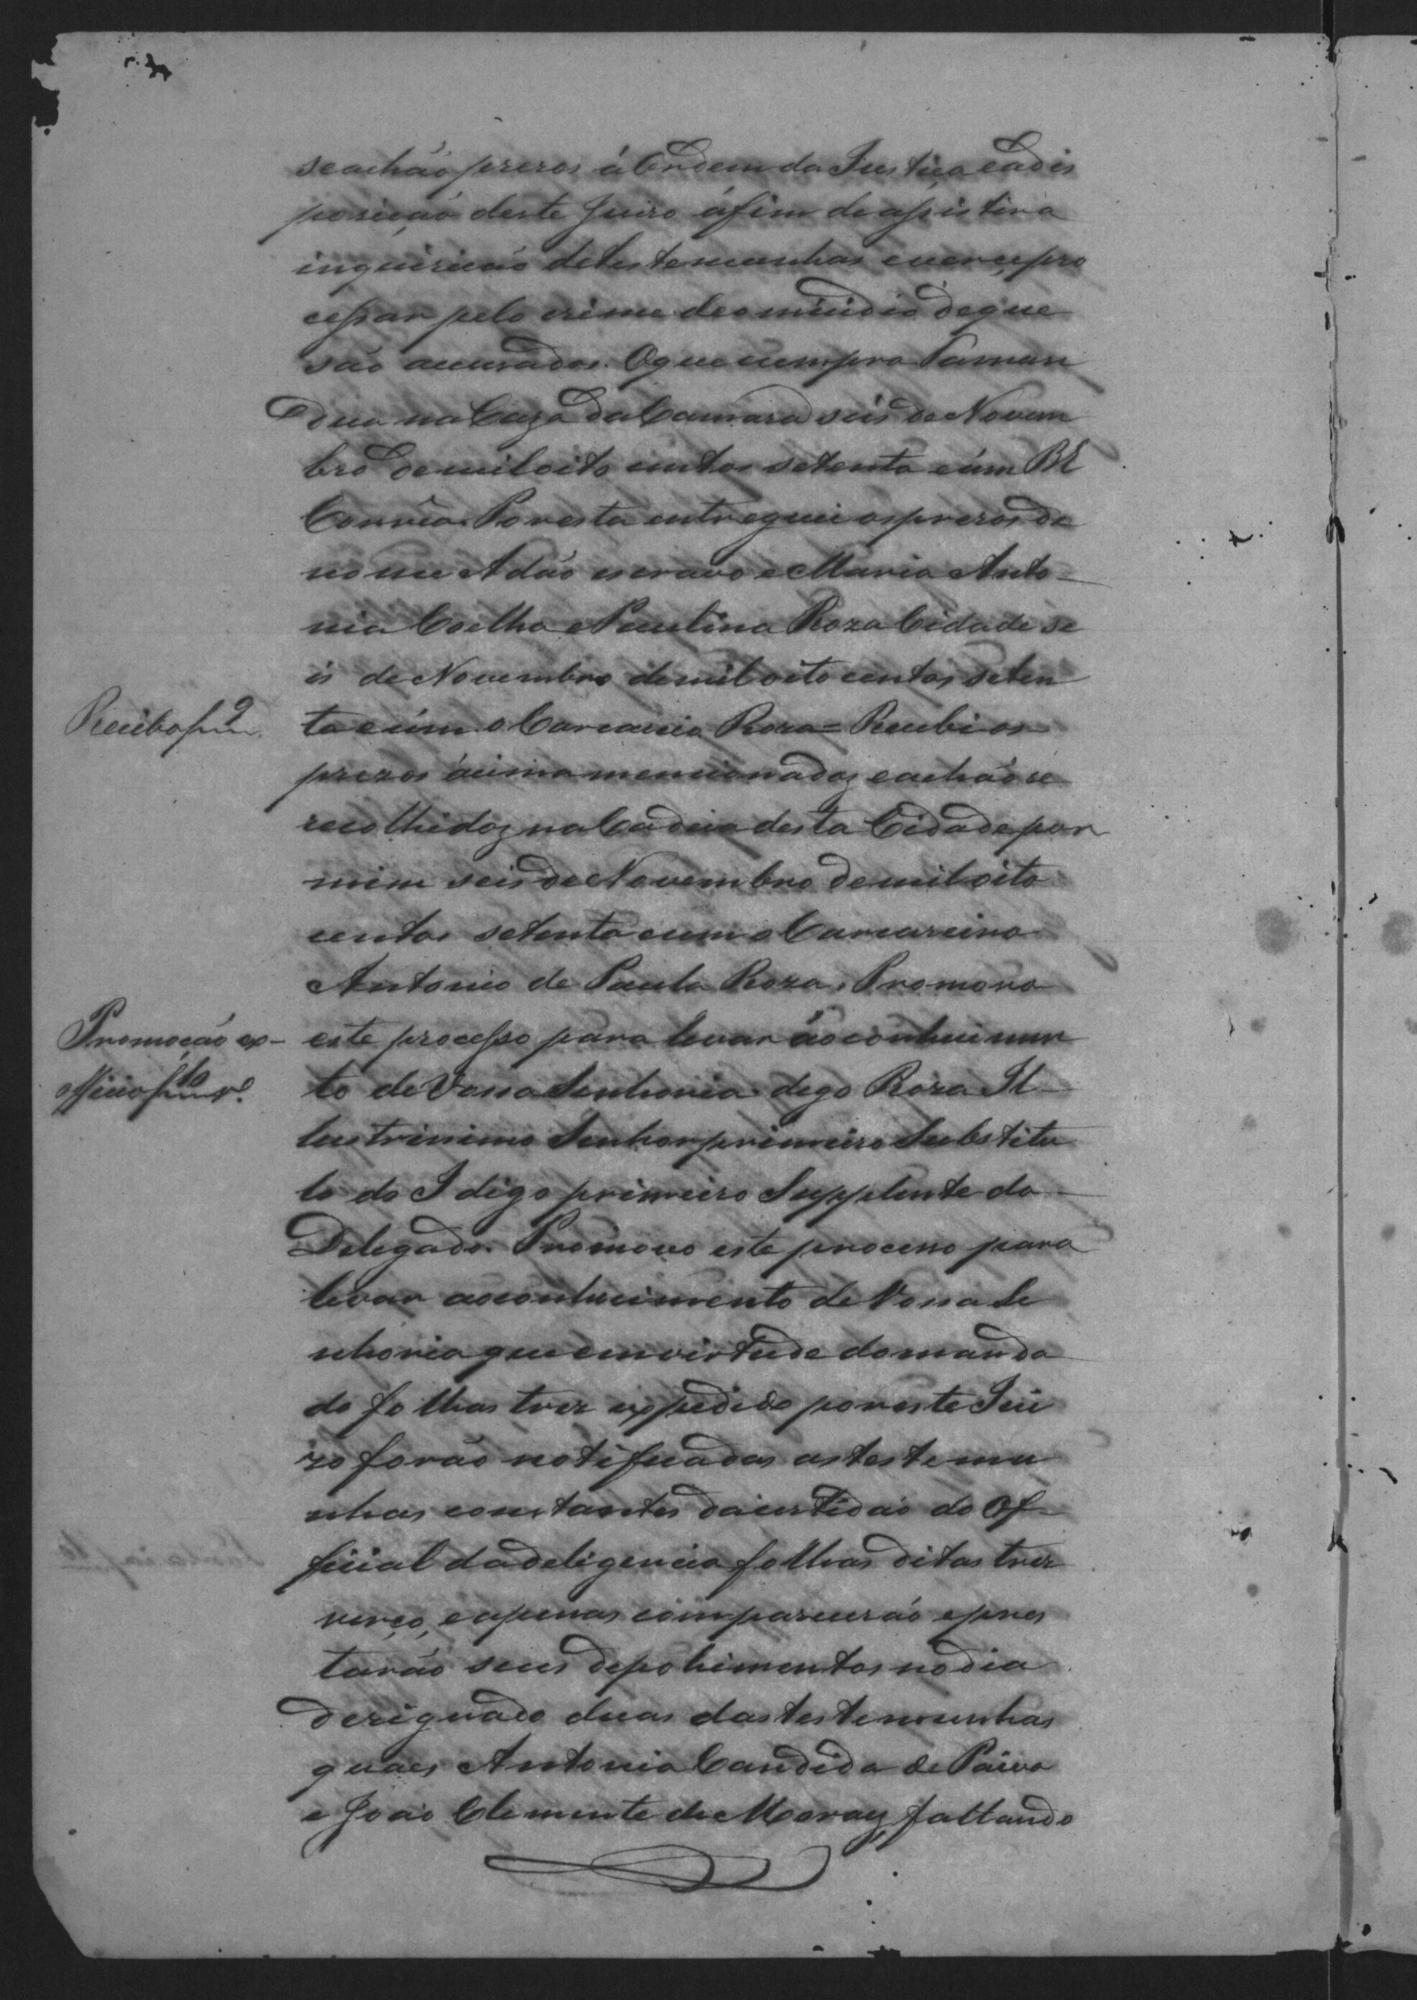 se achão prezos á Ordem da Justiça e adis
posição deste Juizo áfim de assistir a
inquirição detestemunhas e verse pro
cessar pelo crime deomicidio deque
são accuzados. Oque cumpra Taman
dua na Caza da Camara seis de Novem
bro de mil oito centos setenta eúm
Corrêa. Por esta entreguei os prezos de
nome Adão escravo e Maria Anto-
nia Coelho e Paulina Roza Cidade se
is de Novembro de mil oito centos seten
Recibo f 9
ta eúm o Carcareiro Roza = Recebi os
prezos ácima mencionados e achão se
recolhidos na Cadeia desta Cidade por
mim seis de Novembro de mil oito
centos setenta eum o Carcareiro
Antonio de Paula Roza. Promovo
Promoção ex-
officio f 10 v.º
este processo para levar áo conhecimen
to de Vossa Senhoria digo Roza Il-
lustrissimo Senhor primeiro Substitu
to do J digo primeiro Supplente do
Delegado. Promovo este processo para
levar ao conhecimento de Vossa Se
nhoria que em virtude do manda
do folhas trez expedido por este Jui
zo forão notificadas as testemu
nhas constantes da certidão do Of-
ficial da deligencia folhas ditas trez
verço, e apenas comparecerão e pres
tarão seus depohimentos no dia
dezignado duas das testemunhas
quaes Antonio Candido de Paiva
e João Clemente de Moraes, faltando